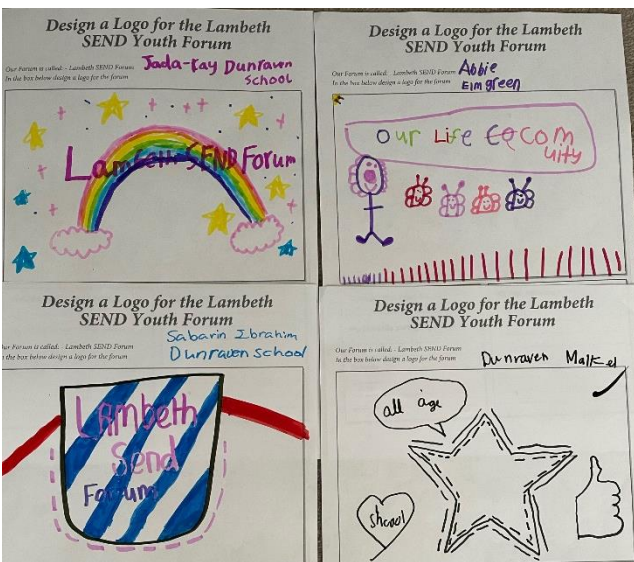 Design a Logo for the Lambeth
SEND Youth Forum
Our Forum is called: - Lambeth SEND Forum
In the box below design a logo for the forum
Jada-Ray Dunraven
School
Lambeth SEND Forum
Design a Logo for the Lambeth
SEND Youth Forum
Our Forum is called: - Lambeth SEND Forum
In the box below design a logo for the forum
Abbie
Elmgreen
our Life
com
unity
Design a Logo for the Lambeth
SEND Youth Forum
Our Forum is called: - Lambeth SEND Forum
In the box below design a logo for the forum
Sabarin Ibrahim
Dunraven school
Lambeth
Send
Design a Logo for the Lambeth
SEND Youth Forum
Our Forum is called: - Lambeth SEND Forum
In the box below design a logo for the forum
Dunraven
all age
shcool